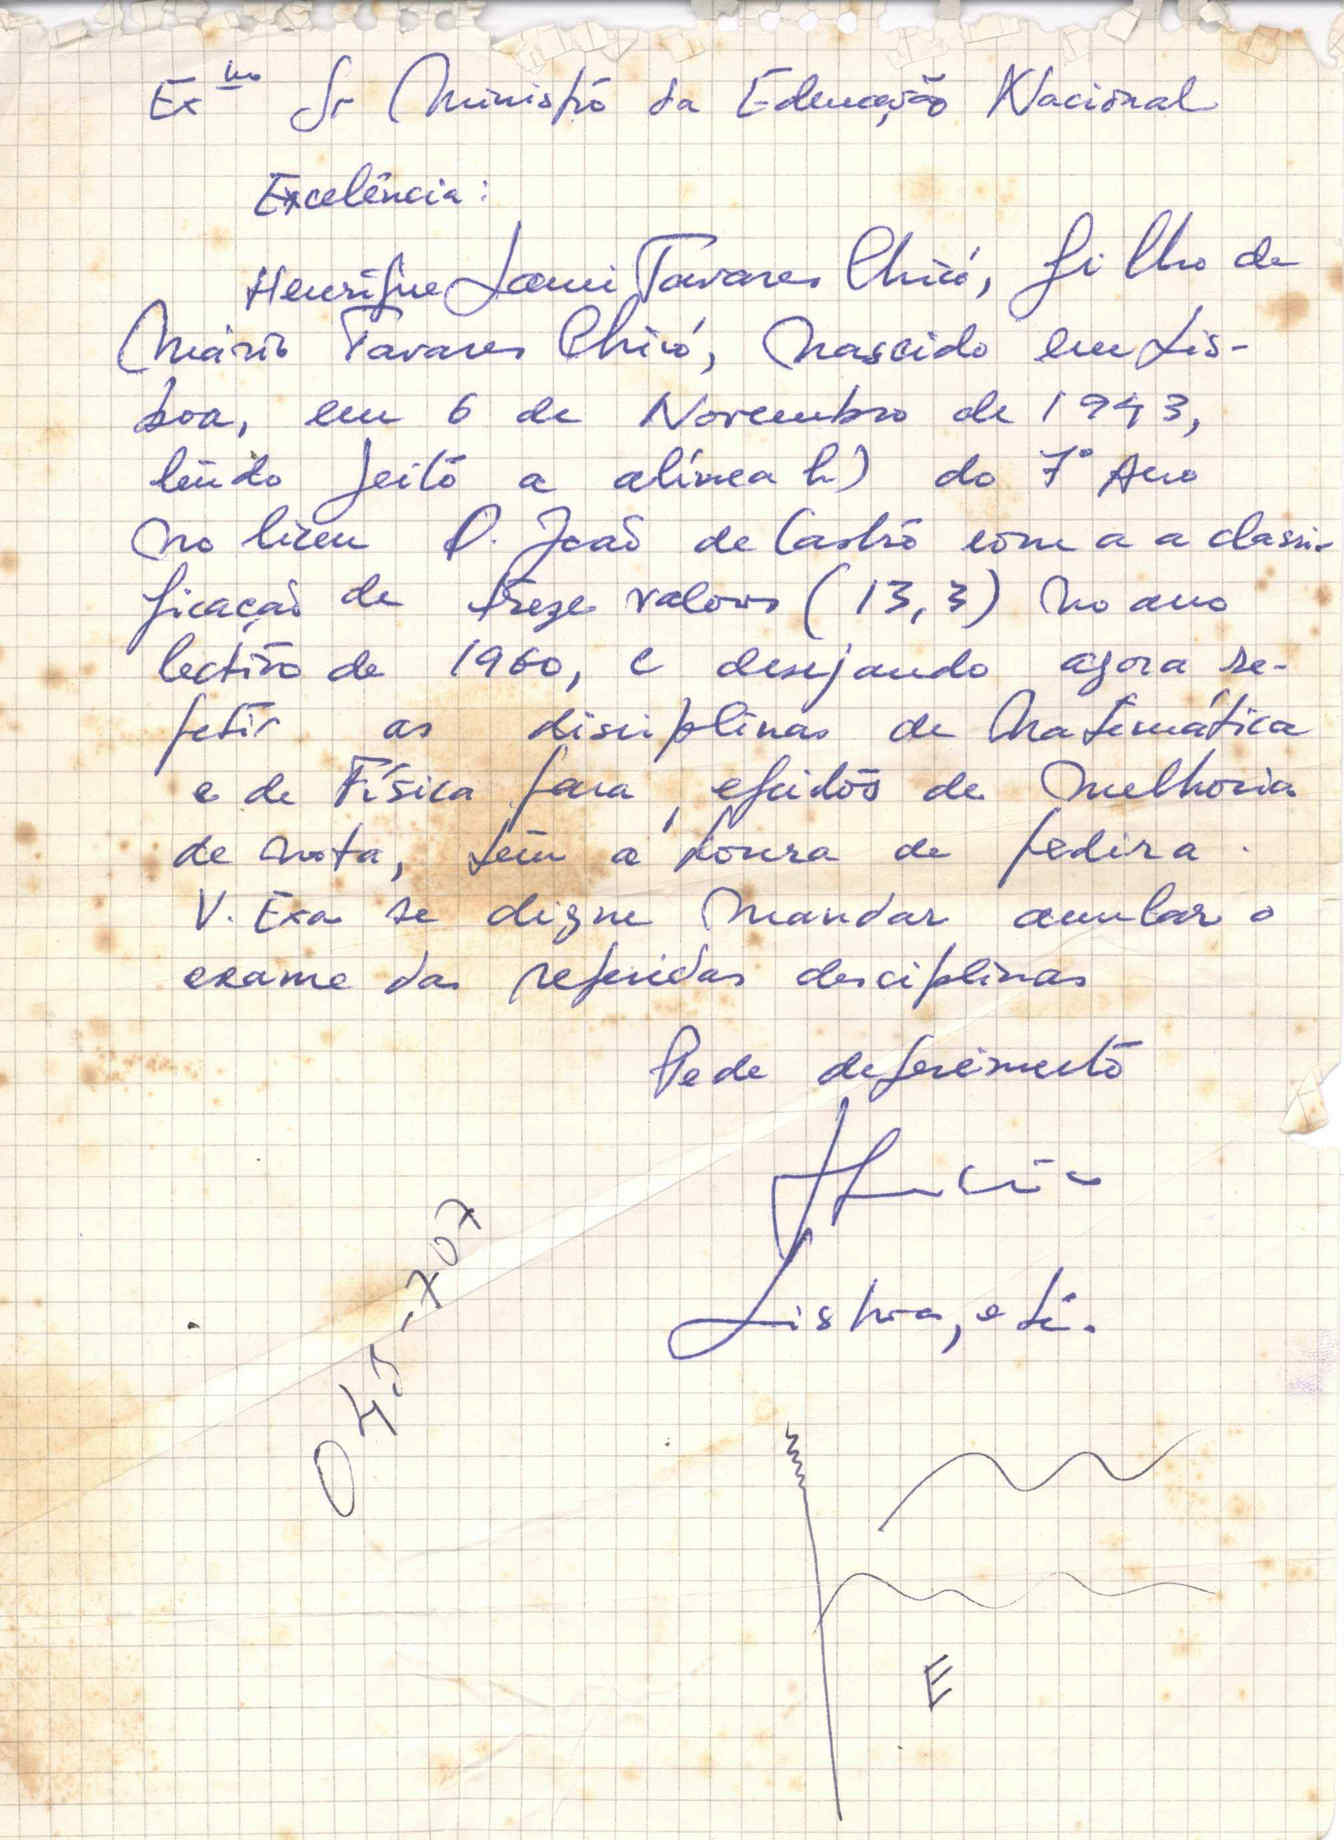 Exmo Sr Ministro da Educação Nacional
Excelência:
Henrique Jami Tavares Chicó, filho de
Mário Tavares Chicó, nascido em Lis-
boa, em 6 de Novembro de 1943,
tendo feito a alínea h) do 7º Ano
no liceu D. João de Castro com a a classi-
ficação de treze valores (13,3) no ano
lectivo de 1960, e desejando agora re-
petir as disciplinas de Matemática
e de Física para efeitos de melhoria
de nota, tem a honra de pedir a
V. Exa se digne mandar anular o
exame das referidas desciplinas
Pede deferimento
Lisboa, etc.
045-707
E